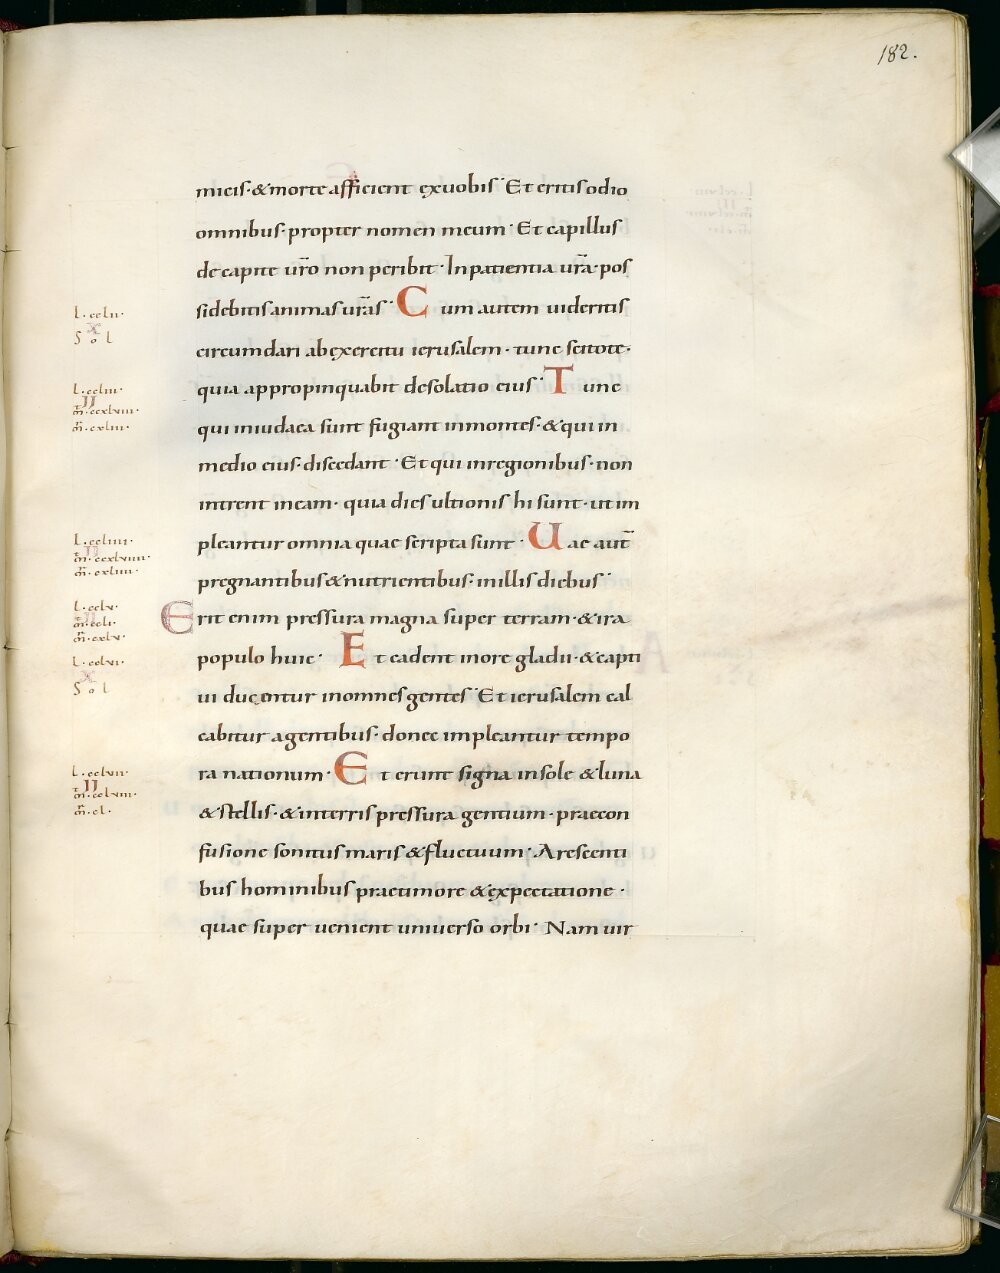 182.
micis· & morte afficient exuobis· Et eritis odio
omnibus· propter nomen meum· Et capillus
de capite ur̄o non peribit· In patientia ur̄a· pos
sidebitis animas ur̄as· Cum autem uideritis
L·cclii·
X
Sol
circumdari ab exercitu ierusalem· tunc scitote·
quia appropinquabit desolatio eius· Tunc
L·ccliii·
II
m̄·ccxlviii·
m̄·cxliii·
qui in iudaea sunt fugiant in montes· & qui in
medio eius· discedant· Et qui in regionibus· non
intrent in eam· quia dies ultionis hi sunt· ut im
pleantur omnia quae scripta sunt· Uae aut̄
L·ccliiii·
II
m̄·ccxlviiii·
m̄·cxliiii·
pregnantibus & nutrientibus· in illis diebus·
Erit enim pressura magna super terram· & ira
L·cclv·
II
m̄·ccli·
m̄·cxlv·
populo huic· Et cadent in ore gladii· & capti
L·cclvi·
X
Sol
ui ducentur in omnes gentes· Et ierusalem cal
cabitur a gentibus· donec impleantur tempo
ra nationum· Et erunt signa in sole & luna
L·cclvii·
II
m̄·cclviii·
m̄·cl·
& stellis· & in terris pressura gentium· prae con
fusione sonitus maris & fluctuum· Arescenti
bus hominibus prae timore & expectatione·
quae super uenient uniuerso orbi· Nam uir